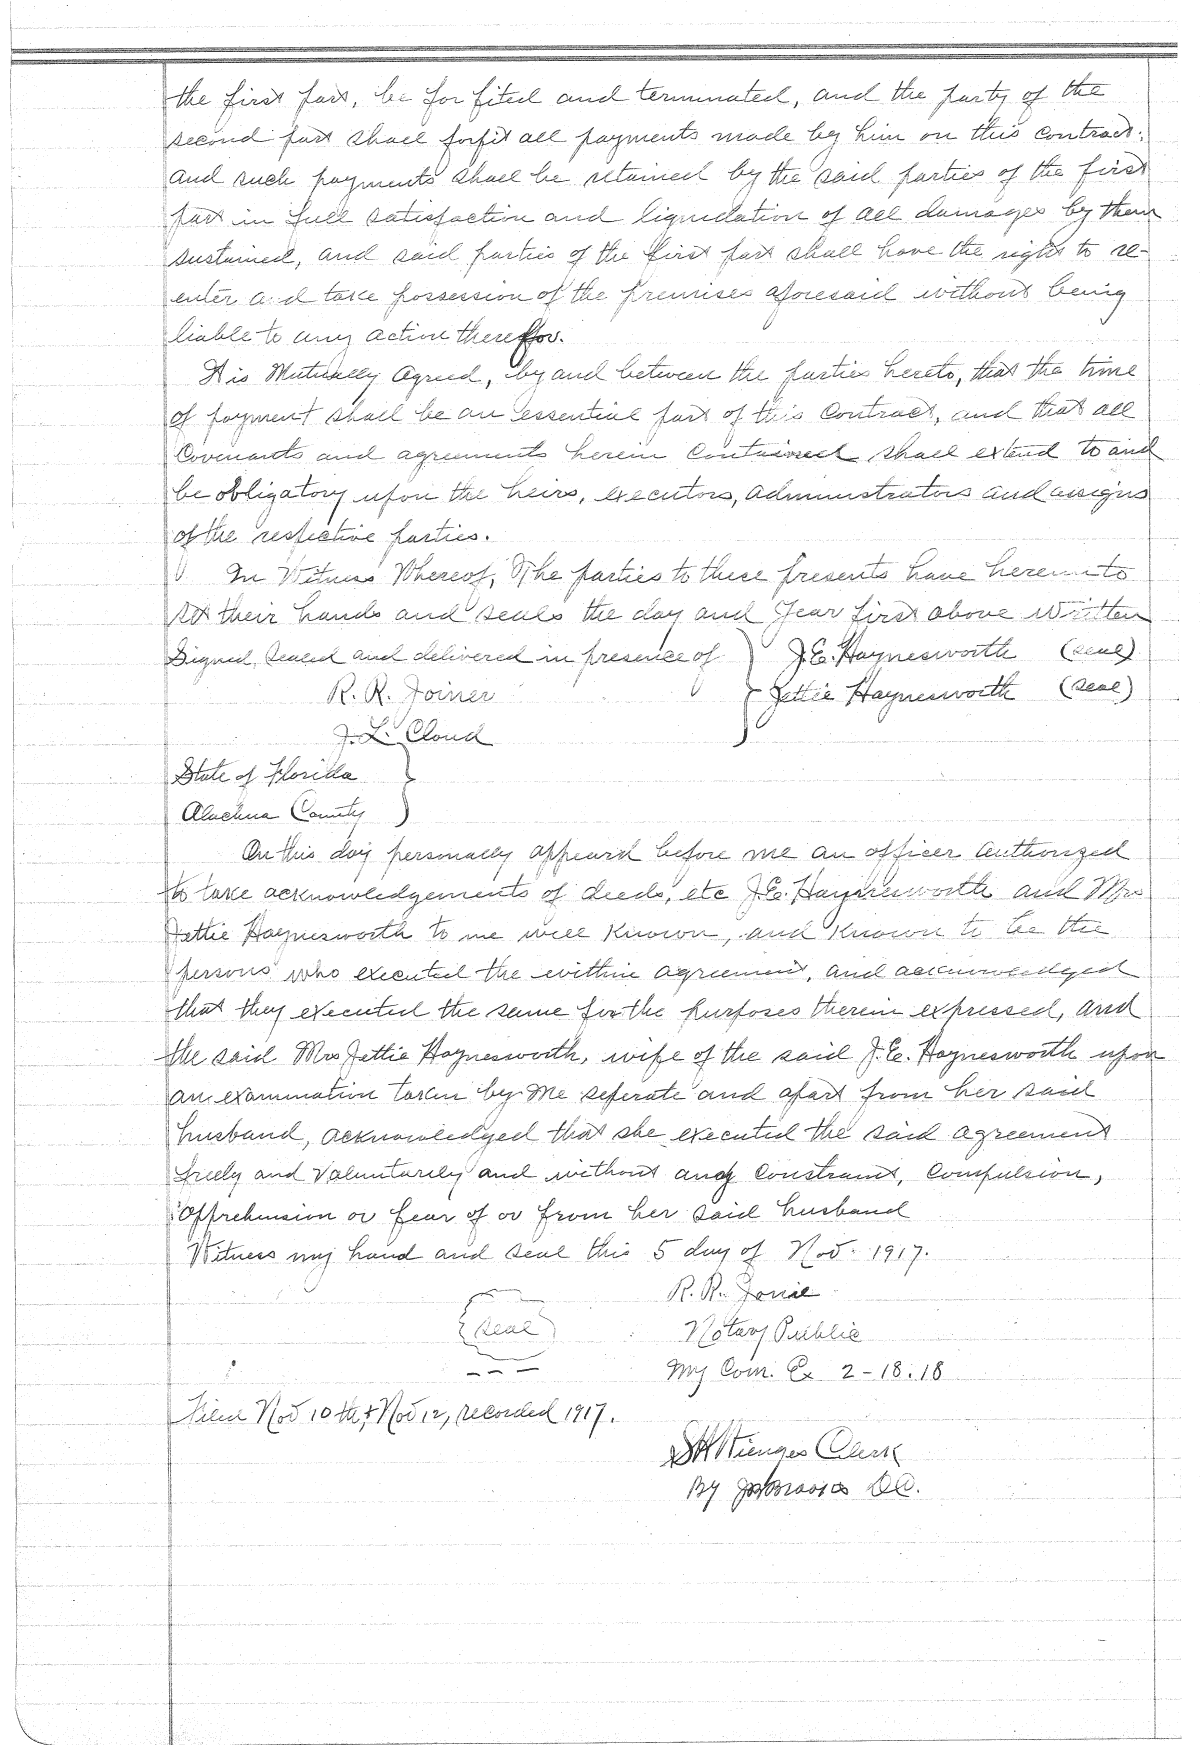 the first part, be forfited and terminated, and the party of the
second part shall forfit all payments made by him on this contract.
and such payments shall be retained by the said parties of the first
part in full satisfaction and liquidation of all damages by them
sustained, and said parties of the first part shall have the right to re-
enter and take possession of the premises aforesaid without being
liable to any action therefor.
It is Mutually Agreed, by and between the parties hereto, that the time
of payment shall be an essential part of this Contract, and that all
Covenants and agreements herein Contained shall extend to and
be obligatory upon the heirs, executors, administrators and assigns
of the respective parties.
In Witness Whereof, The parties to these presents have hereunto
set their hands and seals the day and Year first above Written
Signed, sealed and delivered in presence of } J.E. Haynesworth (seal)
R. R. Joiner } Jettie Haynesworth (seal)
J. L. Cloud
State of Florida }
Alachua County }
On this day personally appeard before me an officer authorized
to take acknowledgements of deeds, etc J.E. Haynesworth and Mrs
Jettie Haynesworth to me well Known, and Known to be the
persons who executed the within agreement, and acknowledged
that they executed the same for the purposes therein expressed, and
the said Mrs Jettie Haynesworth, wife of the said J.E. Haynesworth upon
an examination taken by me seperate and apart from her said
husband, acknowledged that she executed the said agreement
freely and Voluntarily and without any Constraint, Compulsion,
Apprehension or fear of or from her said husband
Witness my hand and seal this 5 day of Nov. 1917.
R. R.
(seal) Notary Public
My Com. Ex 2-18-18
Filed Nov 10th, & Nov 12, recorded 1917.
Clerk
By D.C.